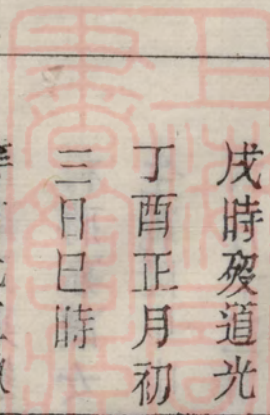 戌時殁道光
丁酉正月初
三日巳時